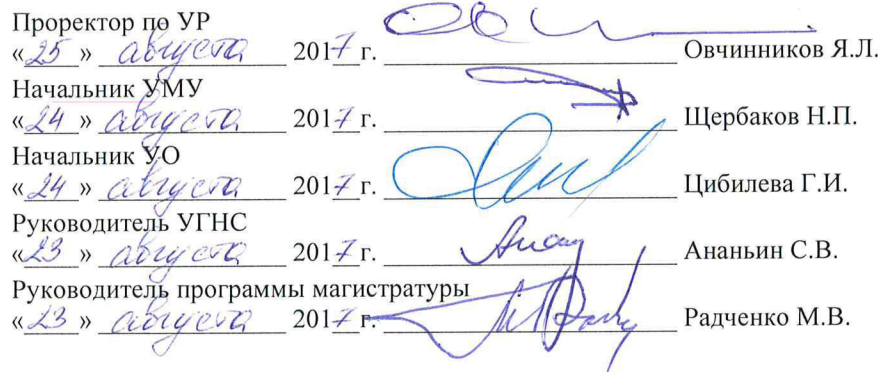 Проректор по УР
«25» августа 2017 г. Овчинников Я.Л.
Начальник УМУ
«24» августа 2017 г. Щербаков Н.П.
Начальник УО
«24» августа 2017 г. Цибилева Г.И.
Руководитель УГНС
«23» августа 2017 г. Ананьин С.В.
Руководитель программы магистратуры
«23» августа 2017 г. Радченко М.В.